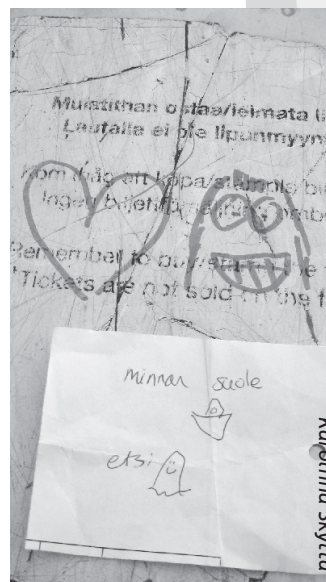 Muistithan ostaa/leimata li
Lautalla ei ole lipunmyyn
Kom ihåg att köpa/stämpla bi
Ingen
Remember to buy/
Tickets are not sold on the f
minnar suole
etsi
Skyttä